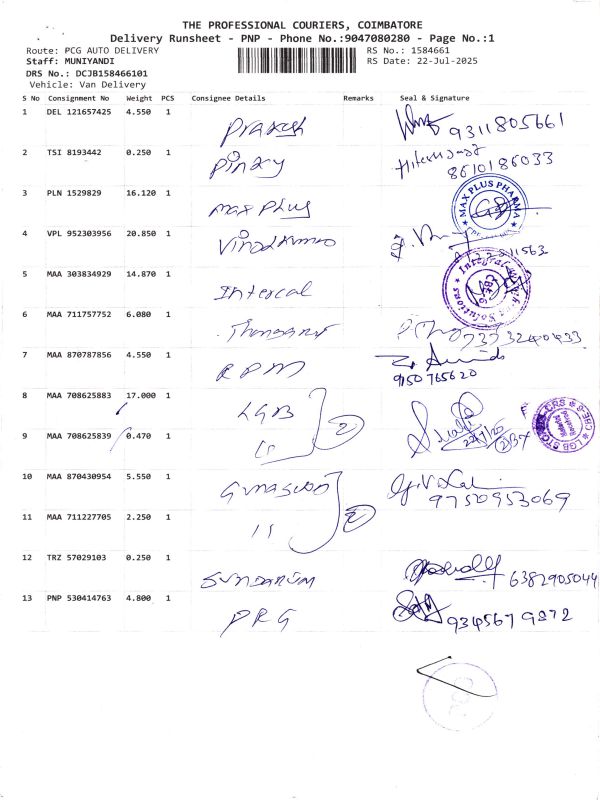 THE PROFESSIONAL COURIERS, COIMBATORE
Delivery Runsheet - PNP - Phone No.:9047080280 - Page No.:1
Route: PCG AUTO DELIVERY RS No.: 1584661
Staff: MUNIYANDI RS Date: 22-Jul-2025
DRS No.: DCJB158466101
Vehicle: Van Delivery
S No Consignment No Weight PCS Consignee Details Remarks Seal & Signature
1 DEL 121657425 4.550 1 Prakash 9311805661
2 TSI 8193442 0.250 1 8610186033
3 PLN 1529829 16.120 1 max plus MAX PLUS PHARMA
4 VPL 952303956 20.850 1
5 MAA 303834929 14.870 1 Intercal
6 MAA 711757752 6.080 1
7 MAA 870787856 4.550 1 RPM 9150765620
8 MAA 708625883 17.000 1 LGB
9 MAA 708625839 0.470 1 2
10 MAA 870430954 5.550 1 9750953069
11 MAA 711227705 2.250 1 2
12 TRZ 57029103 0.250 1 SUNDARUM 6382905044
13 PNP 530414763 4.800 1 PRG 9345679872